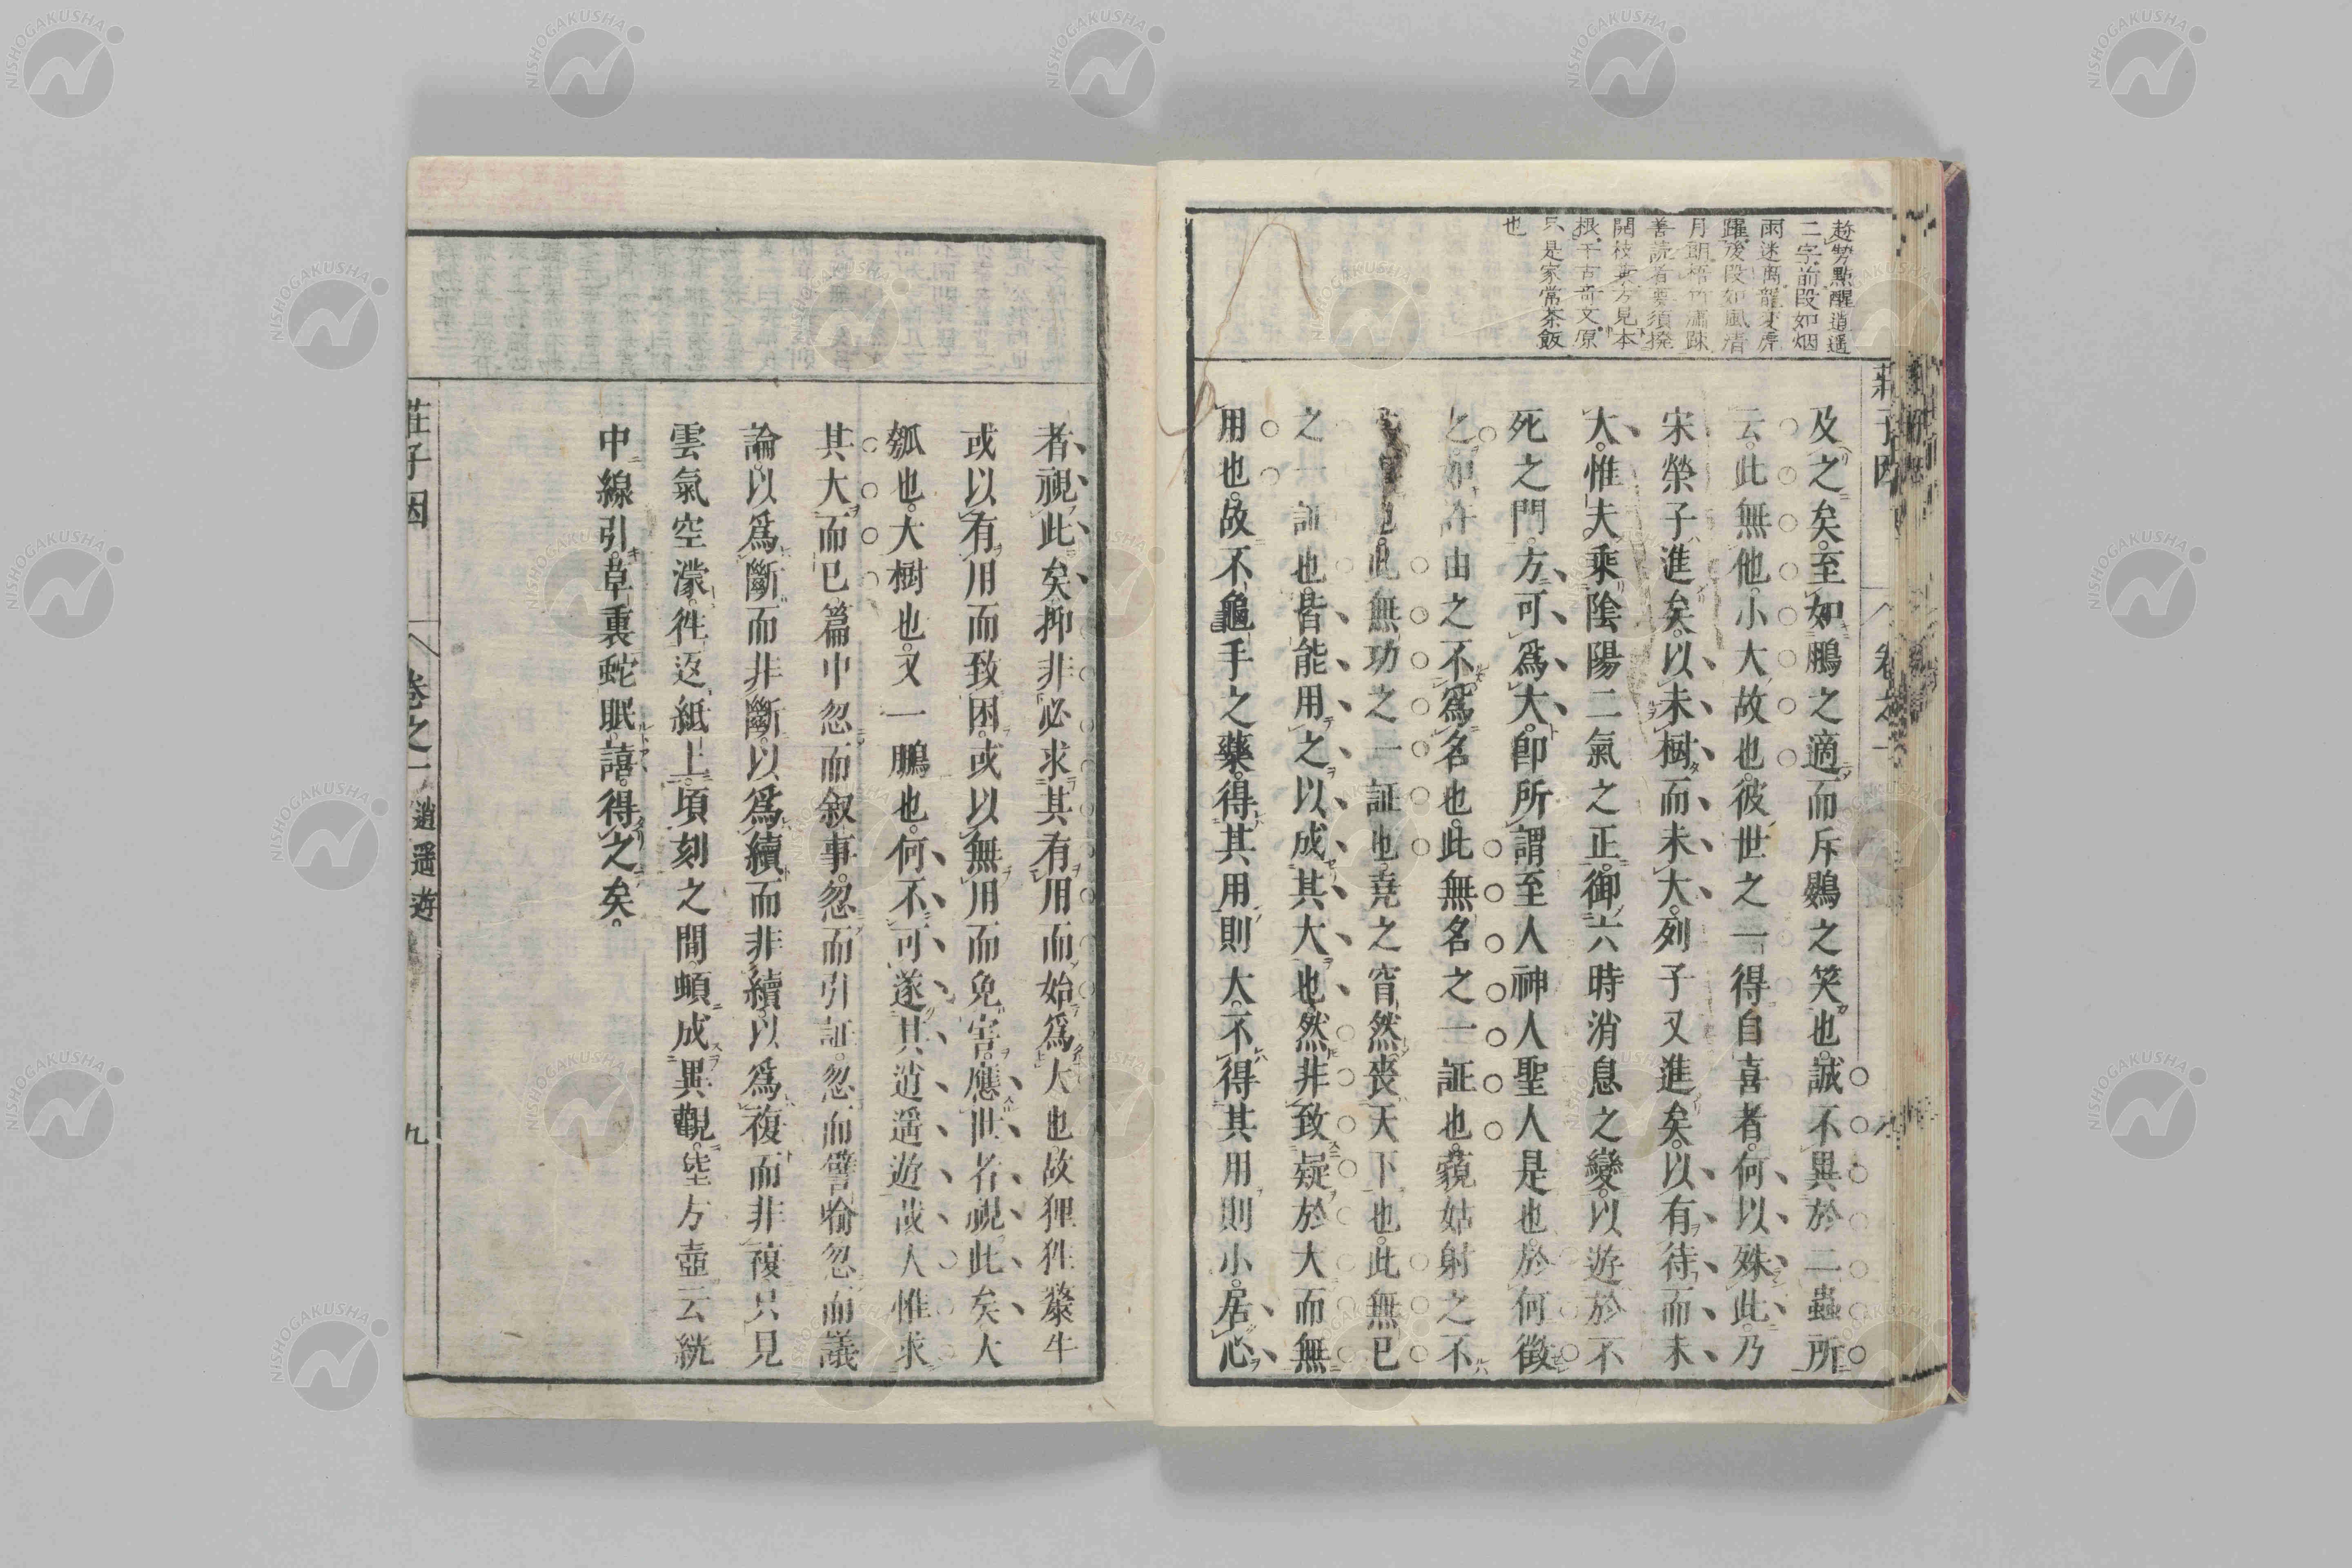 趂勢點醒逍遥
二字前段如烟
雨迷離龍变虎
躍後段如風清
月朗梧竹瀟踈
善読者要須撥
開枝葉方見本
根千古奇文原
只是家常茶飯
也
莊子因
卷之一
及之矣。至如鵬之適而斥鷃之笑也。誠不異於二蟲所
云。此無他。小大故也。彼世之一得自喜者。何以殊此。乃
宋榮子進矣。以未樹而未大。列子又進矣。以有待而未
大。惟夫乘陰陽二氣之正。御六時消息之變。以遊於不
死之門。方可爲大。卽所謂至人神人聖人是也。於何徵
之。如許由之不爲名也。此無名之一証也。藐姑射之不
也。此無功之一証也。堯之窅然喪天下也。此無已
之一証也。皆能用之以成其大也。然非致疑於大而無
用也。故不龜手之藥。得其用則大。不得其用則小。居心
者。視此矣。抑非必求其有用而始爲大也。故狸狌斄牛
或以有用而致困。或以無用而免害。應世者視此矣。大
瓠也。大樹也。又一鵬也。何不可遂其逍遥遊哉。人惟求
其大而已。篇中忽而叙事。忽而引証。忽而譬喻。忽而議
論。以爲斷而非斷。以爲續而非續。以爲複而非複。只見
雲氣空濛。徃返紙上。頃刻之間。頓成異觀。陸方壺云統
中線引。草裏蛇眠。譆。得之矣。
莊子因
卷之一
逍遥遊
九
NISHOGAKUSHA